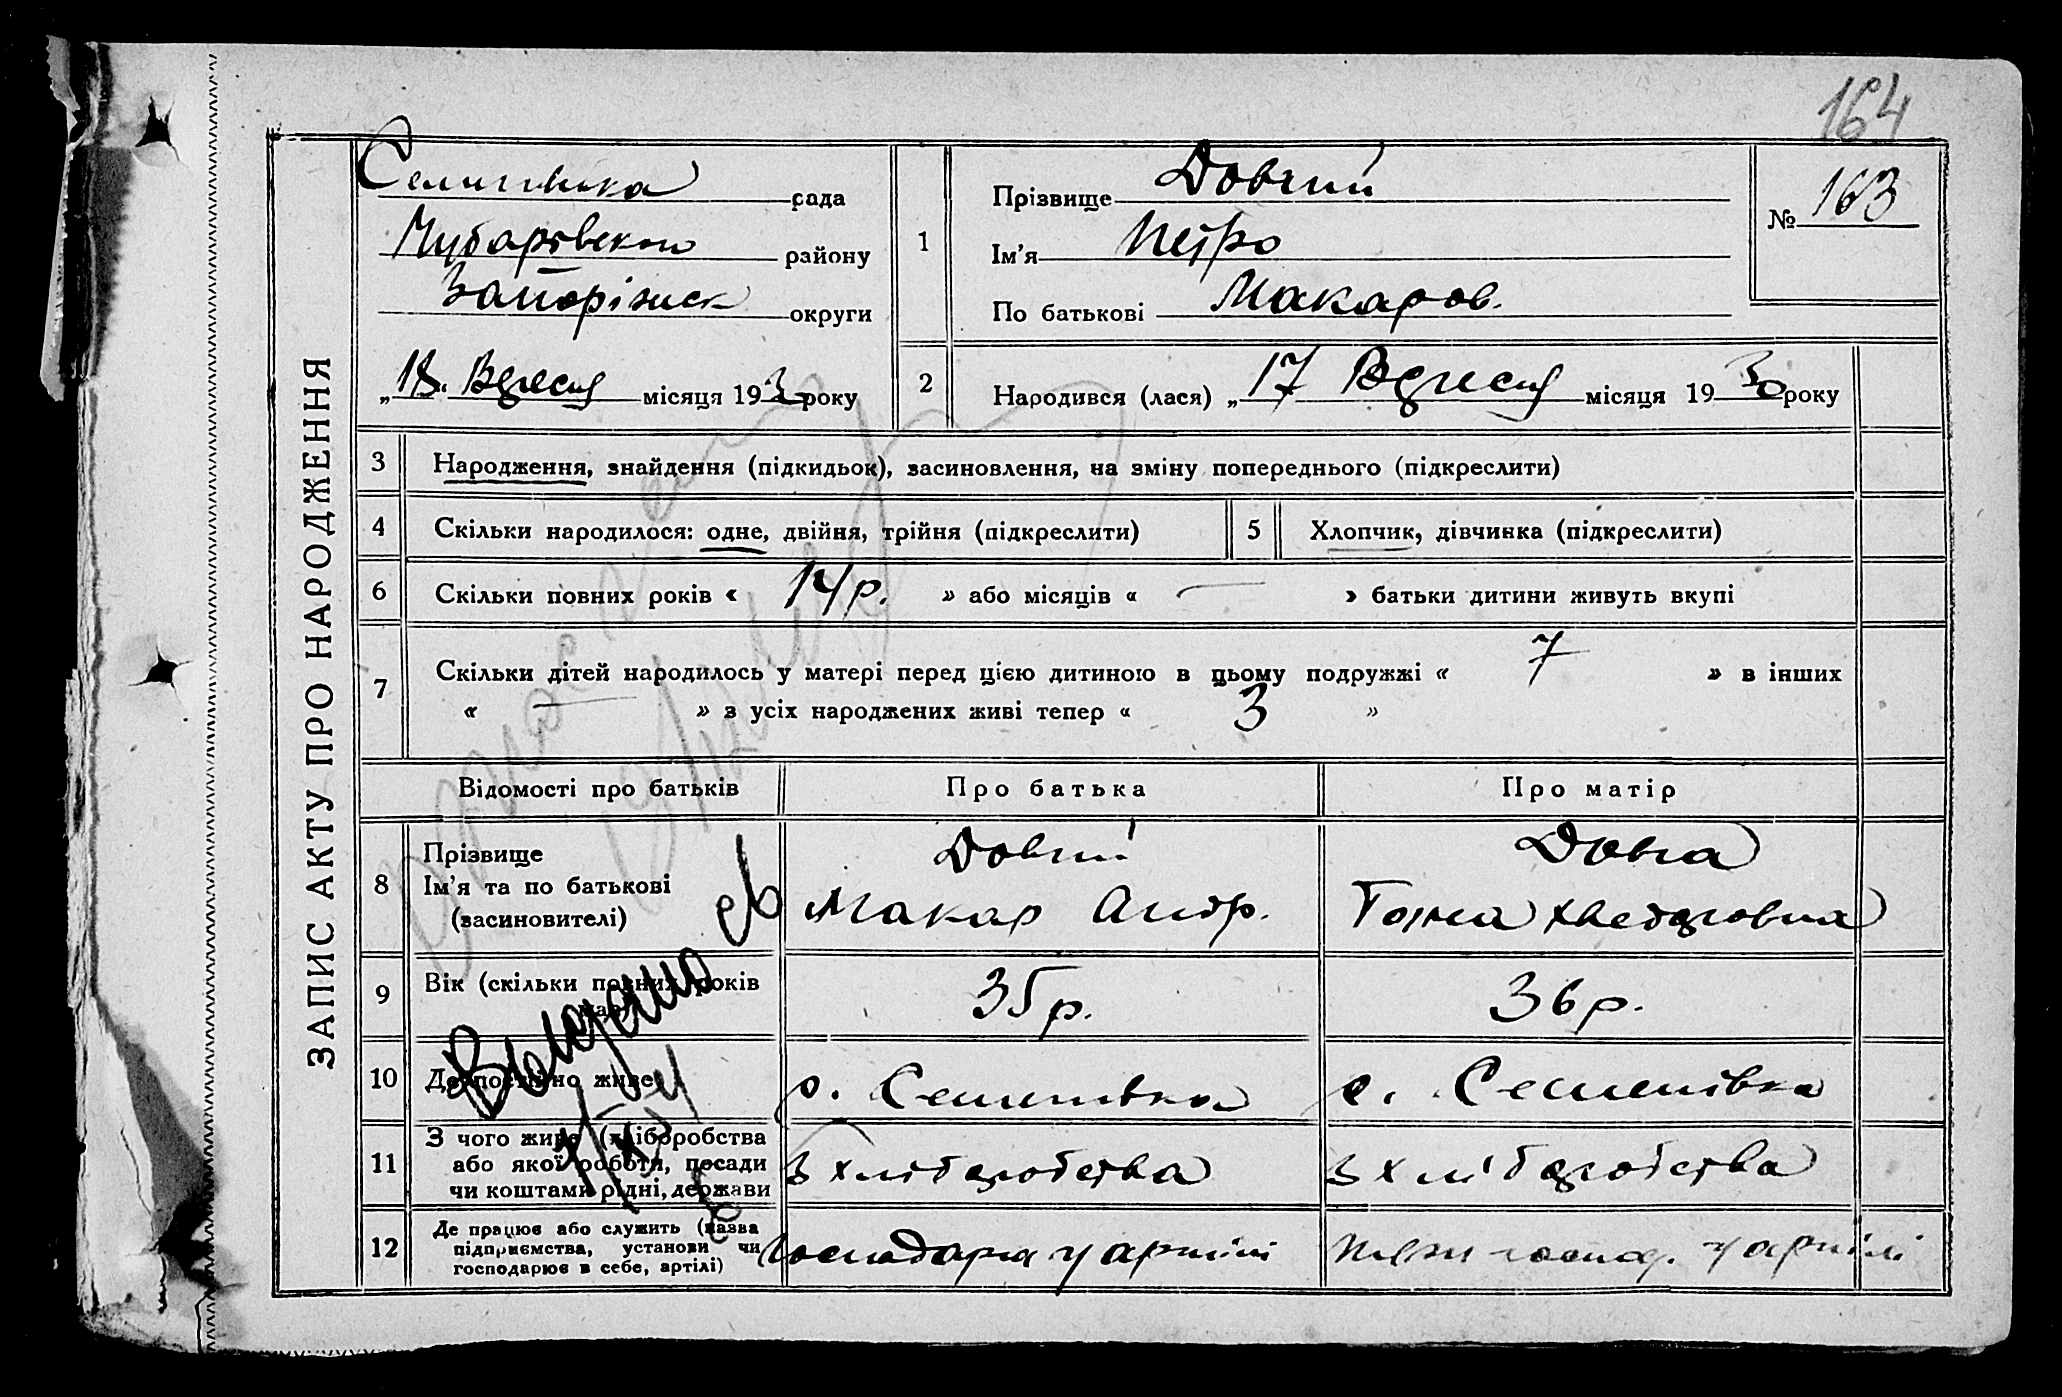 164
ЗАПИС АКТУ ПРО НАРОДЖЕННЯ
рада
Чубарівськ району
Запоріжск округи
„18" Вересня місяця 193 року
1
Прізвище Довгий
Ім'я Петро
По батькові Макаров.
№ 163
2
Народився (лася) „17 Вересня місяця 1930 року
3 Народження, знайдення (підкидьок), засиновлення, на зміну попереднього (підкреслити)
4 Скільки народилося: одне, двійня, трійня (підкреслити) 5 Хлопчик, дівчинка (підкреслити)
6 Скільки повних років « 14 р. » або місяців « — » батьки дитини живуть вкупі
7 Скільки дітей народилось у матері перед цією дитиною в цьому подружжі « 7 » в інших
« — » з усіх народжених живі тепер « 3 »
Відомості про батьків Про батька Про матір
8 Прізвище
Ім'я та по батькові
(засиновителі)
Довгий
Макар Андр.
Довга
9 Вік (скільки повних років
має) 35 р. 36 р.
10 Де постійно живе с. Семенівка с. Семенівка
11 З чого живе (хліборобства
або якої роботи, посади
чи коштами рідні, держави
З хліборобства З хліборобства
12 Де працює або служить (назва
підприємства, установи чи
господарює в себе, артілі)
Господарює у артілі
госпд. у артілі
Выдано св